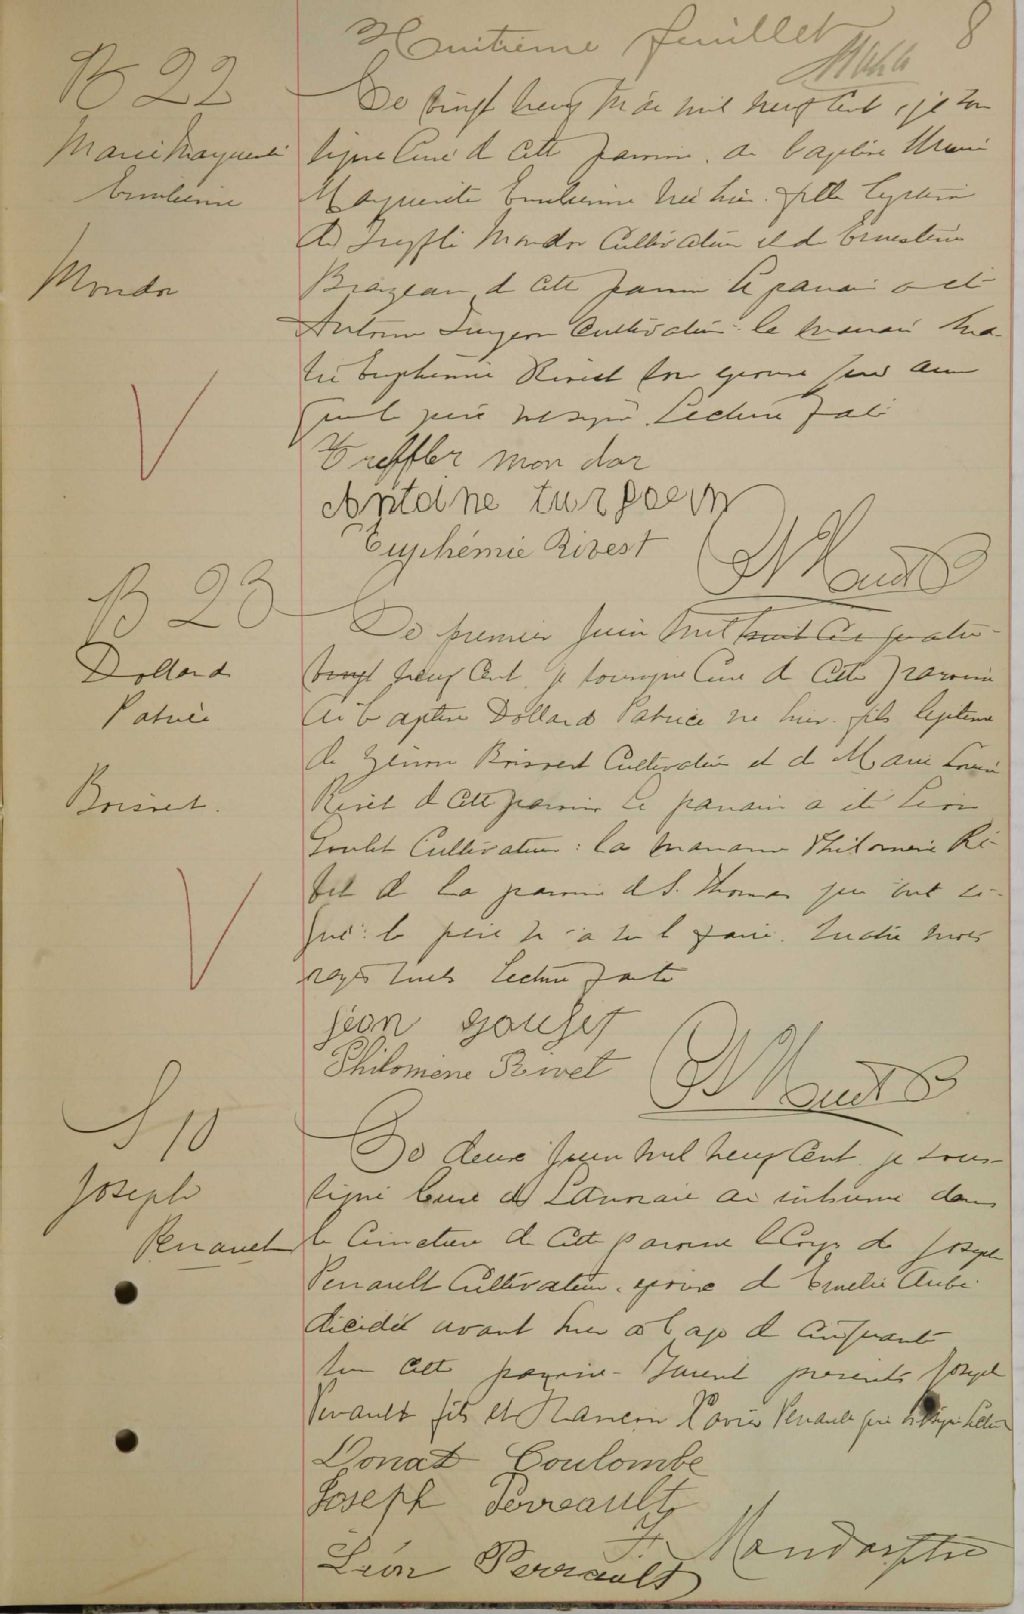 Huitieme feuillet 8
B 22
Marie Marguerite
Emilienne
Mondor
Le vingt neuf Mai mil neuf cent, je sous
signe Curé de cette paroisse, ai baptisé Marie
Marguerite Emilienne née hier. fille legitime
de Treffle Mondor Cultivateur et de Ernestine
Brazeau de cette paroisse le parrain a été
Antoine Turgeon cultivateur la marraine
Euphémie Rivest son epouse qui ainsi
que le père ont signé. Lecture faite
Treffler mon dor
Antoine turgoeon
Euphémie Rivest
B 23
Dollard
Patrice
Boisvert.
Le premier Juin mil huit cen quatre-
vingt neuf cent, je soussigne Curé de cette paroisse
ai baptisé Dollard Patrice ne hier. fils legitime
de Zénon Boisvert Cultivateur et de Marie Louise
Rivet de cette paroisse le parrain a été Léon
Goulet Cultivateur: la marraine Philomene Ri-
vet de la paroisse de S. Thomas qui ont si-
gné: le père n'a su le faire. quatre mots
rayés nuls Lecture faite
Léon Goulet
Philomène Rivet
S 10
Joseph
Perrault
Le deux Juin mil neuf cent je sous-
signé Curé de Lanoraie ai inhumé dans
le Cimetiere de cette paroisse le Corps de Joseph
Perrault Cultivateur, epoux de Emelie Aubé
décédé avant hier a l age de cinquante
cette paroisse - Furent presents Joseph
Perrault fils et Xavier Perrault qui
Donat Coulombe
Joseph Perreault
Léon Perreault
F. Mondor ptre